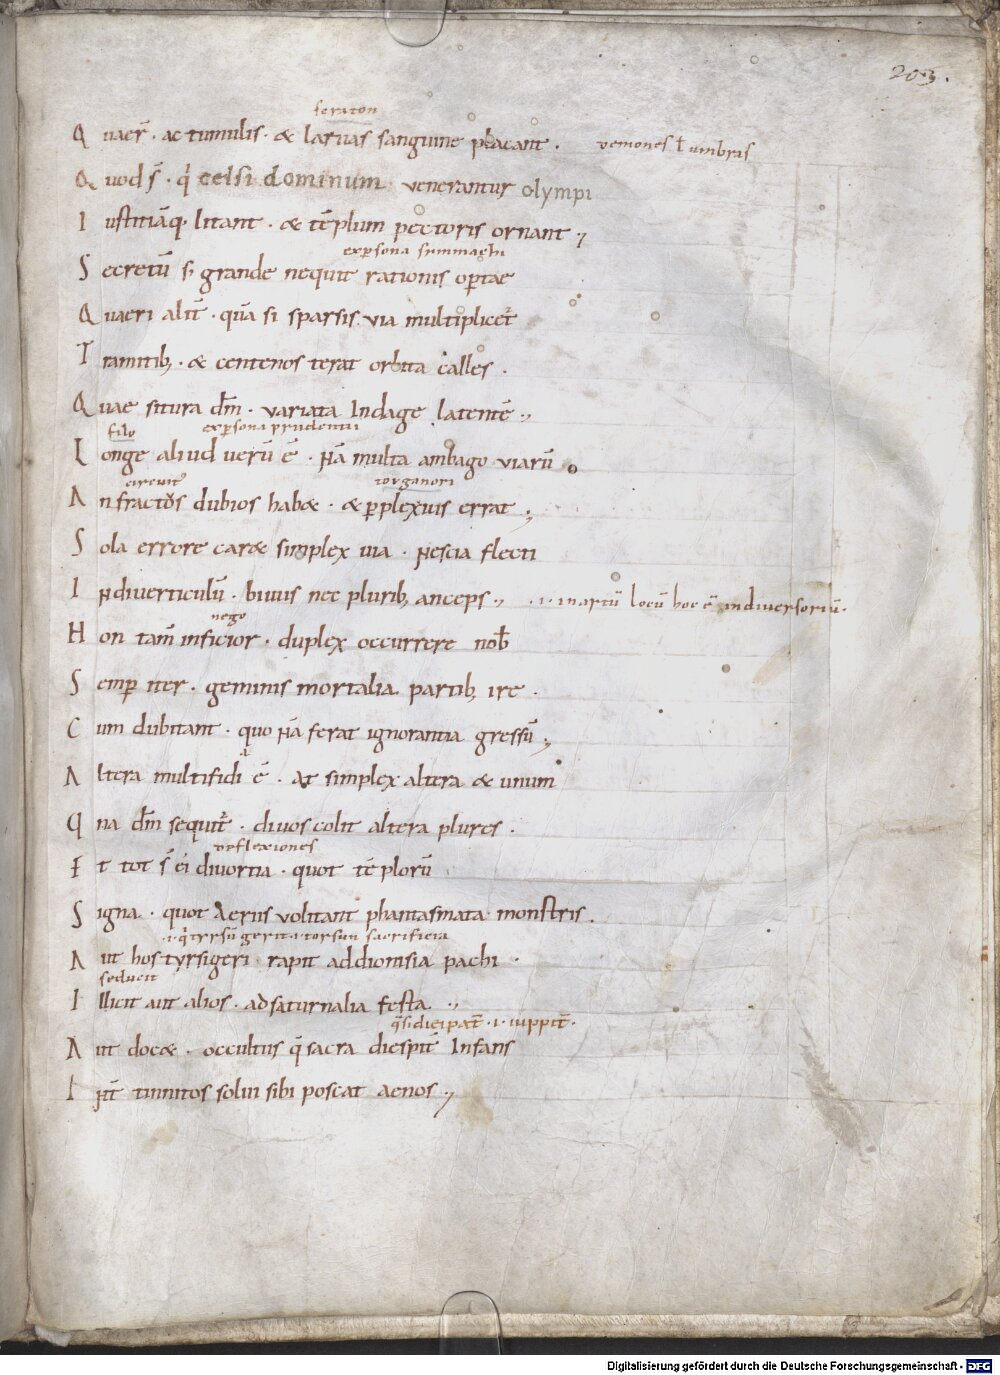 203.
feraton
Quaer̄· ac tumulis· & laruas sanguine placant· demones ł umbras
Quod s̄· q̇ celsi dominum venerantur olympi
Iustitiāq· litant· & tēplum pectoris ornant;
expsona simmachi
Secretū s; grande nequit rationis optae
Quaeri alit̄· quā si sparsis via multiplicet̄
Tramitib;· & centenos terat orbita calles·
Quae situra dm̄· variata Indage latentē·,
filo expsona prudentii
Longe aliud uerū ē· Nā multa ambago viarū
circuit
Anfractos dubios hab&· & pplexius errat;
Sola errore car& simplex uia· Nescia flecti
In diuerticulū· biuius nec plurib; anceps·, ·i· in artū locū hoc ē in diuersoriū·
nego
Hon tam̄ inficior· duplex occurrere nob̄
Semp iter· geminis mortalia partib; ire·
Cum dubitant· quo Nā ferat ignorantia gressū;
Altera multifidi ē· At simplex altera & unum
Qna dm̄ sequit̄· diuos colit altera plures·
deflexiones
Et tot s̄ ei diuortia· quot tēplorū
Signa· quot Aeriis volitant phantasmata monstris·
Aut hos tyrsigeri· rapit ad dionisia pachi·
seducit
Illicit aut alios· ad saturnalia festa·,
·i· iuppit̄·
Aut doc&· occultus q̄ sacra diespit̄ Infans
Nt̄ tinnitos solui sibi poscat aenos;
Digitalisierung gefördert durch die Deutsche Forschungsgemeinschaft - DFG